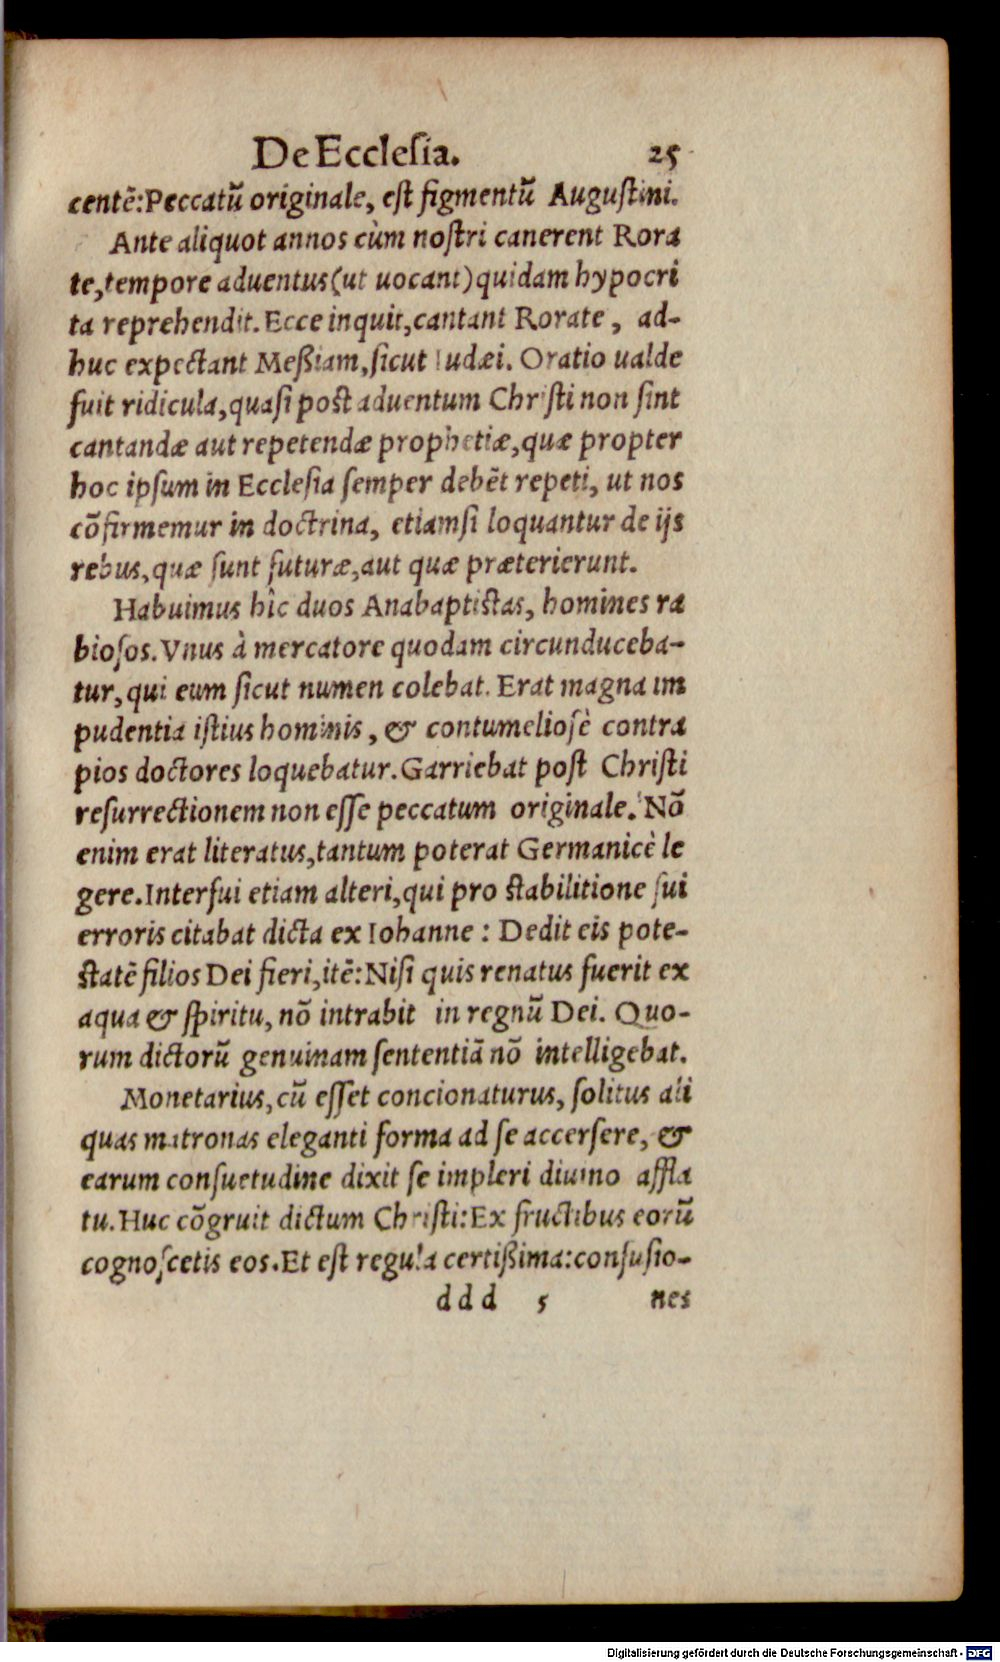 De Ecclesia. 25
centē:Peccatū originale, est figmentū Augustini.
Ante aliquot annos cùm nostri canerent Rora
te,tempore aduentus(ut uocant)quidam hypocri
ta reprehendit. Ecce inquit,cantant Rorate, ad-
huc expectant Meßiam,sicut Iudæi. Oratio ualde
fuit ridicula,quasi post aduentum Christi non sint
cantandæ aut repetendæ prophetiæ,quæ propter
hoc ipsum in Ecclesia semper debēt repeti, ut nos
cōfirmemur in doctrina, etiamsi loquantur de ijs
rebus,quæ sunt futuræ,aut quæ præterierunt.
Habuimus hîc duos Anabaptistas, homines ra
biosos. Vnus à mercatore quodam circunduceba-
tur,qui eum sicut numen colebat. Erat magna im
pudentia istius hominis, & contumeliosè contra
pios doctores loquebatur. Garriebat post Christi
resurrectionem non esse peccatum originale. Nō
enim erat literatus,tantum poterat Germanicè le
gere. Interfui etiam alteri,qui pro stabilitione sui
erroris citabat dicta ex Iohanne : Dedit eis pote-
statē filios Dei fieri,itē: Nisi quis renatus fuerit ex
aqua & spiritu, nō intrabit in regnū Dei. Quo-
rum dictorū genuinam sententiā nō intelligebat.
Monetarius,cū esset concionaturus, solitus ali
quas matronas eleganti forma ad se accersere, &
earum consuetudine dixit se impleri diuino affla
tu. Huc cōgruit dictum Christi: Ex fructibus eorū
cognoscetis eos. Et est regula certißima: confusio-
ddd 5 nes
Digitalisierung gefördert durch die Deutsche Forschungsgemeinschaft - DFG